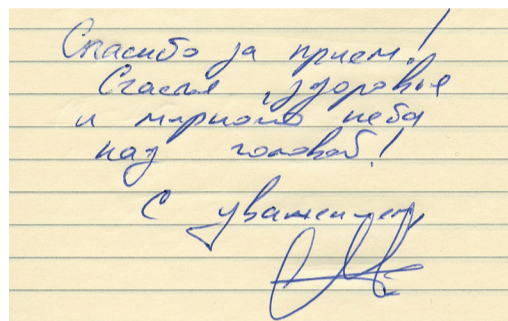 Спасибо за прием!
Счастья, здоровья
и мирного неба
над головой!
С уважением,